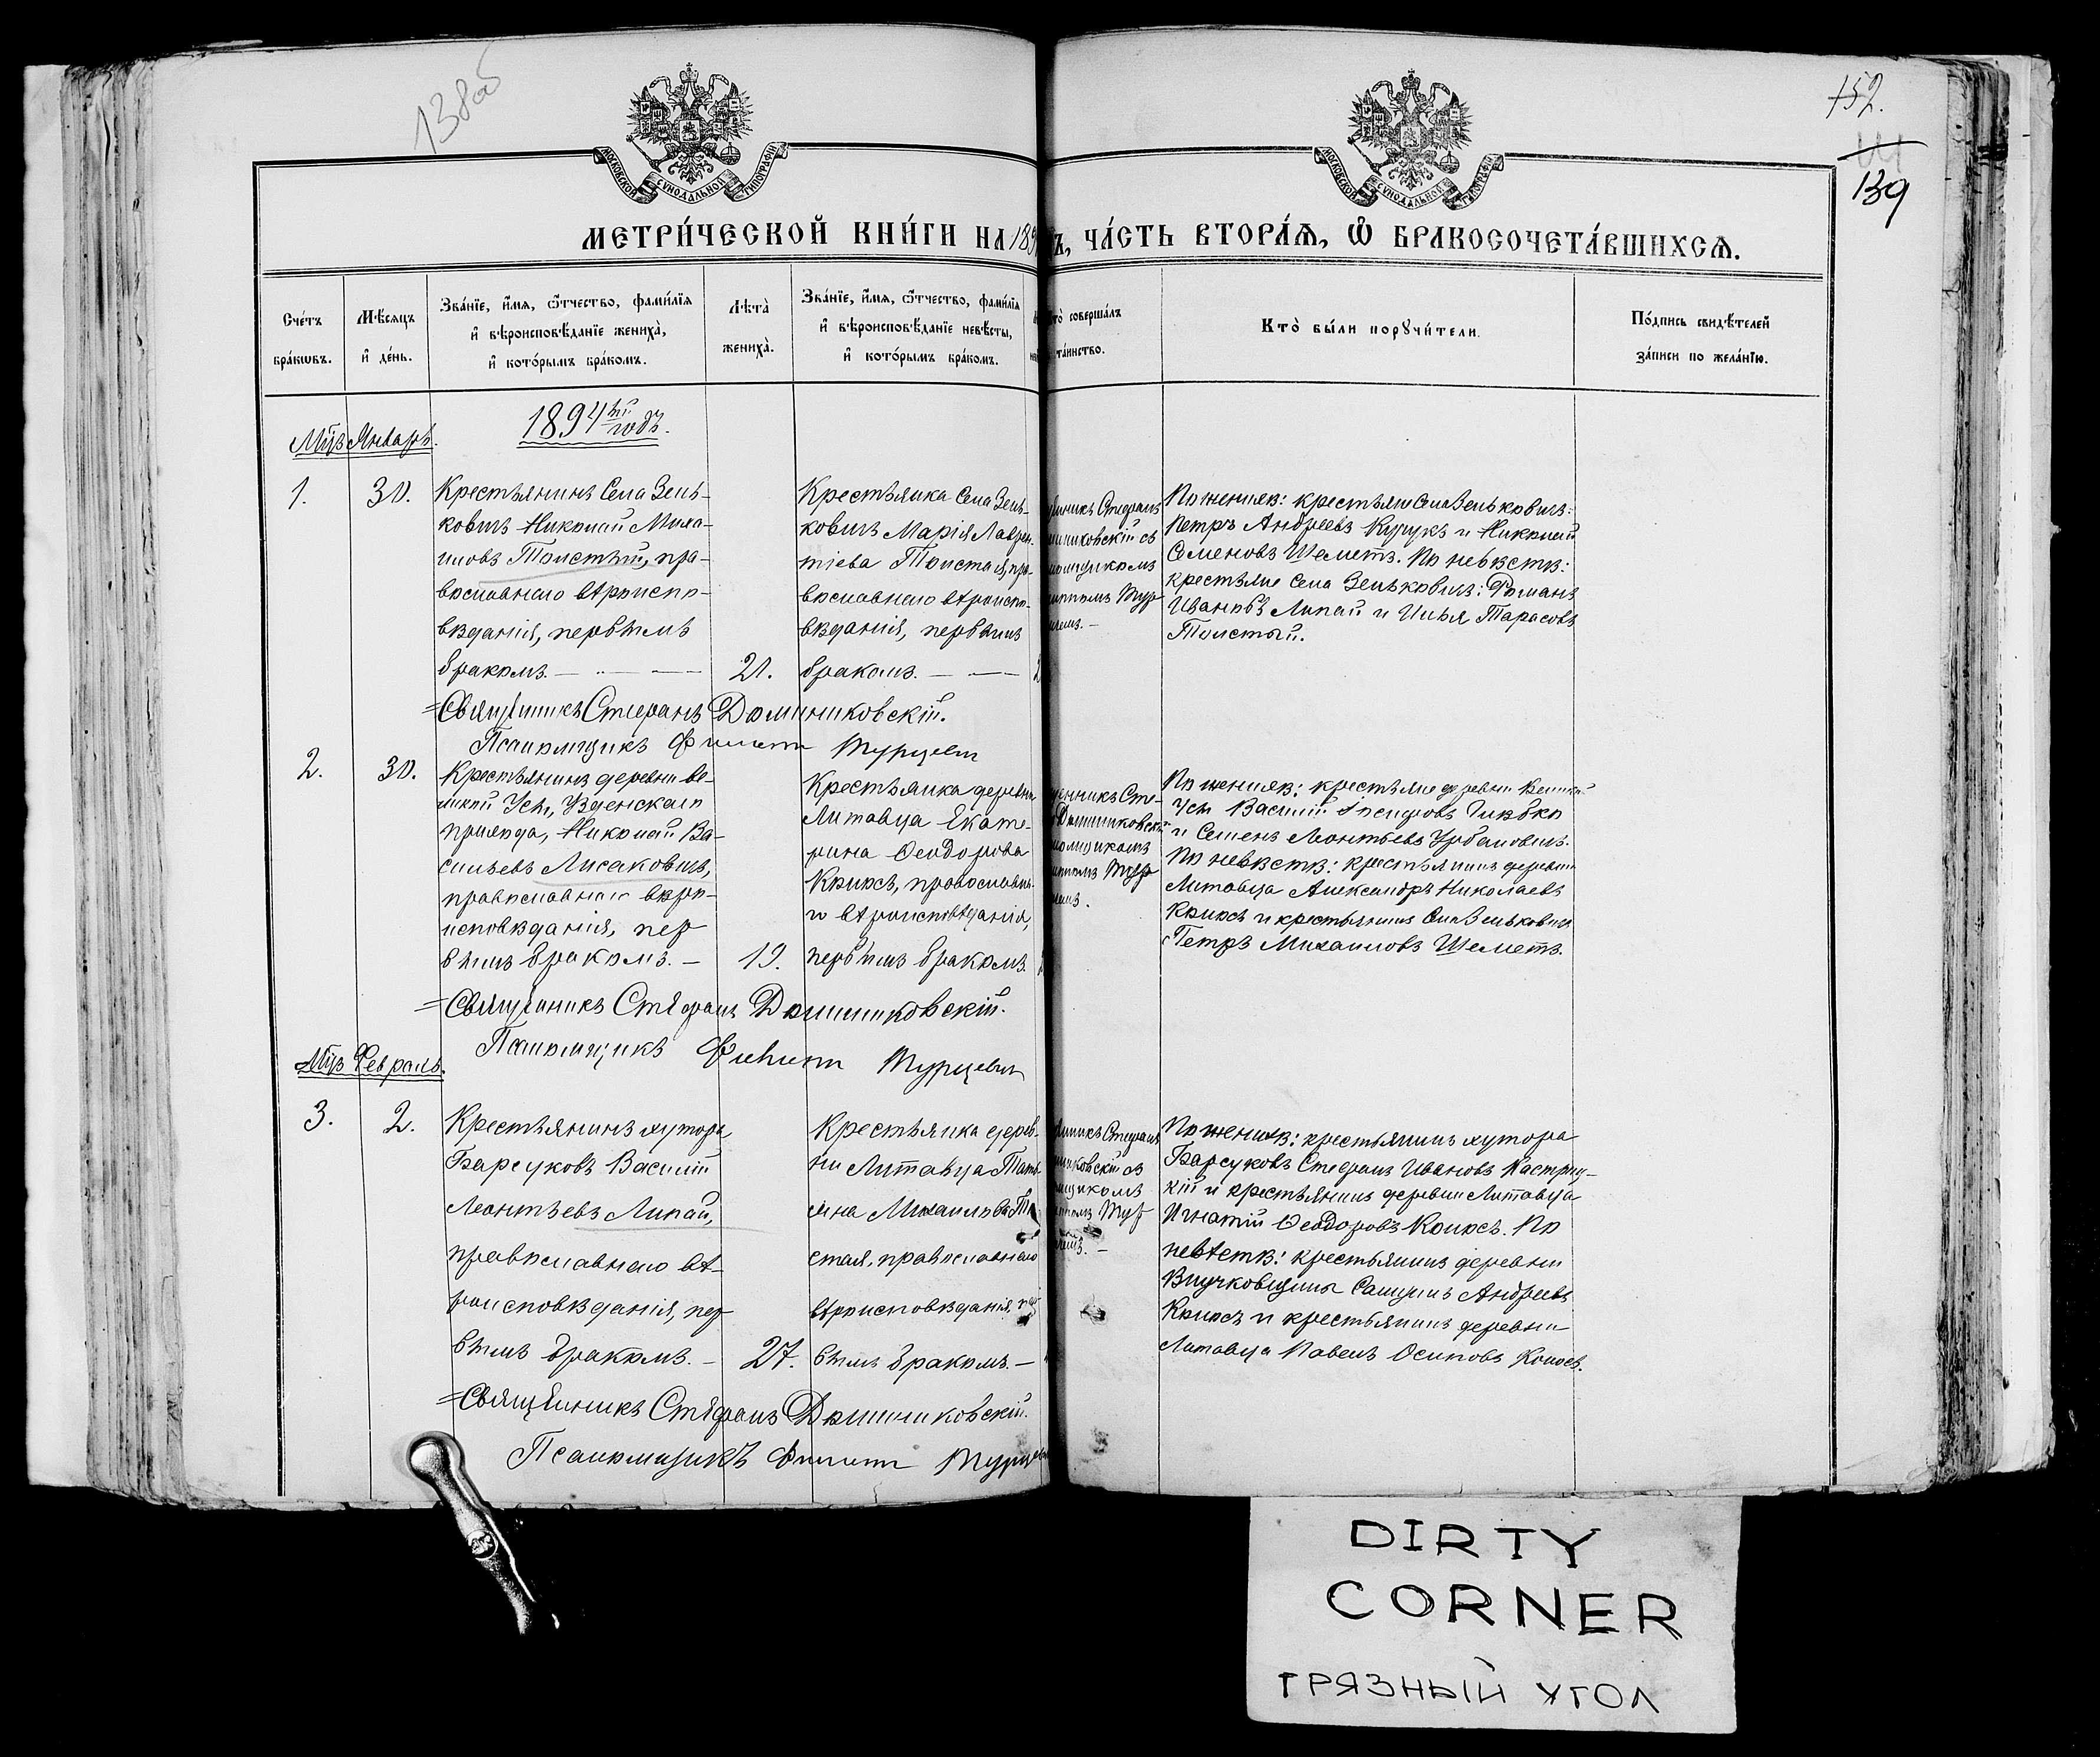 138об
152.
139
МОСКОВСКОЙ СѴНОДАЛЬНОЙ ТИПОГРАФІИ
МОСКОВСКОЙ СѴНОДАЛЬНОЙ ТИПОГРАФІИ
МЕТРИ́ЧЕСКОЙ КНИ́ГИ НА 189
Ъ, ЧА́СТЬ ВТОРА́Ѧ, Ѽ БРАКОСОЧЕТА́ВШИХСѦ.
Сче́тъ
бра́кѡвъ.
Мѣ́сѧцъ
и҆ де́нь.
Зва́нїе, и҆́мѧ, ѻ҆́тчество, фами́лїѧ
и҆ вѣроисповѣ́данїе жениха̀,
и҆ кото́рымъ бра́комъ.
Лѣ́та
жениха̀.
Зва́нїе, и҆́мѧ, ѻ҆́тчество, фами́лїѧ
и҆ вѣроисповѣ́данїе невѣ́сты,
и҆ кото́рымъ бра́комъ.
то̀ соверша́лъ
та́инство.
Кто̀ бы́ли порꙋчи́тели.
По́дпись свидѣ́телей
за́писи по жела́нїю.
1894ый годъ.
Мцъ Январь.
1.
30.
Крестьянинъ села Зень-
ковичъ Николай Миха-
иловъ Толстый, пра-
вославнаго вѣроиспо-
вѣданія, первымъ
бракомъ. —
21.
Крестьянка села Зень-
ковичъ Марія Лаврен-
тіева Толстая, пра-
вославнаго вѣроиспо-
вѣданія, первымъ
бракомъ. —
Стефанъ
съ
Тур
По женихѣ: крестьяне села Зеньковичъ:
Петръ Андреевъ Куцукъ и Николай
Семеновъ Шеметъ. По невѣстѣ:
крестьяне села Зеньковичъ: Романъ
Ивановъ Липай и Илья Тарасовъ
Толстый.
=Священникъ Стефанъ Доминиковскій.
Псаломщикъ Филиппъ Турцевич
2.
30.
Крестьянинъ деревни Ве-
ликой Усы, Узденскаго
прихода, Николай Ва-
сильевъ Лисаковичъ,
православнаго вѣро-
исповѣданія, пер
вымъ бракомъ. —
19.
Крестьянка деревни
Литавца Екате-
рина Ѳеодорова
Колосъ, православна-
го вѣроисповѣданія,
первымъ бракомъ.
щенникъ Сте-
Доминиковскій
ломщикомъ
Тур
По женихѣ: крестьяне деревни Великой
Усы Василій
и Семенъ Леонтьевъ Урбановичъ.
По невѣстѣ: крестьянинъ деревни
Литавца Александръ Николаевъ
Колосъ и крестьянинъ села Зеньковичъ
Петръ Михаиловъ Шеметъ.
=Священникъ Стефанъ Доминиковскій.
Псаломщикъ Филиппъ Турцевич
Мцъ Февраль.
3.
2.
Крестьянинъ хутора
Барсуковъ Василій
Леонтьевъ Липай,
православнаго вѣ-
роисповѣданія, пер
вымъ бракомъ. —
27.
Крестьянка дерев-
ни Литавца Тать-
яна Михаилова То
стая, православнаго
вѣроисповѣданія, пер
вымъ бракомъ. —
Стефанъ
съ
Тур
По женихѣ: крестьянинъ хутора
Барсуковъ Стефанъ Ивановъ Кастриц-
кій и крестьянинъ деревни Литавца
Игнатій Ѳеодоровъ Колосъ. По
невѣстѣ: крестьянинъ деревни
Самуилъ Андреевъ
Колосъ и крестьянинъ деревни
Литавца Павелъ Осиповъ Колосъ.
=Священникъ Стефанъ Доминиковскій.
Псаломщикъ Филиппъ Турцевич
DIRTY
CORNER
ГРЯЗНЫЙ УГОЛ